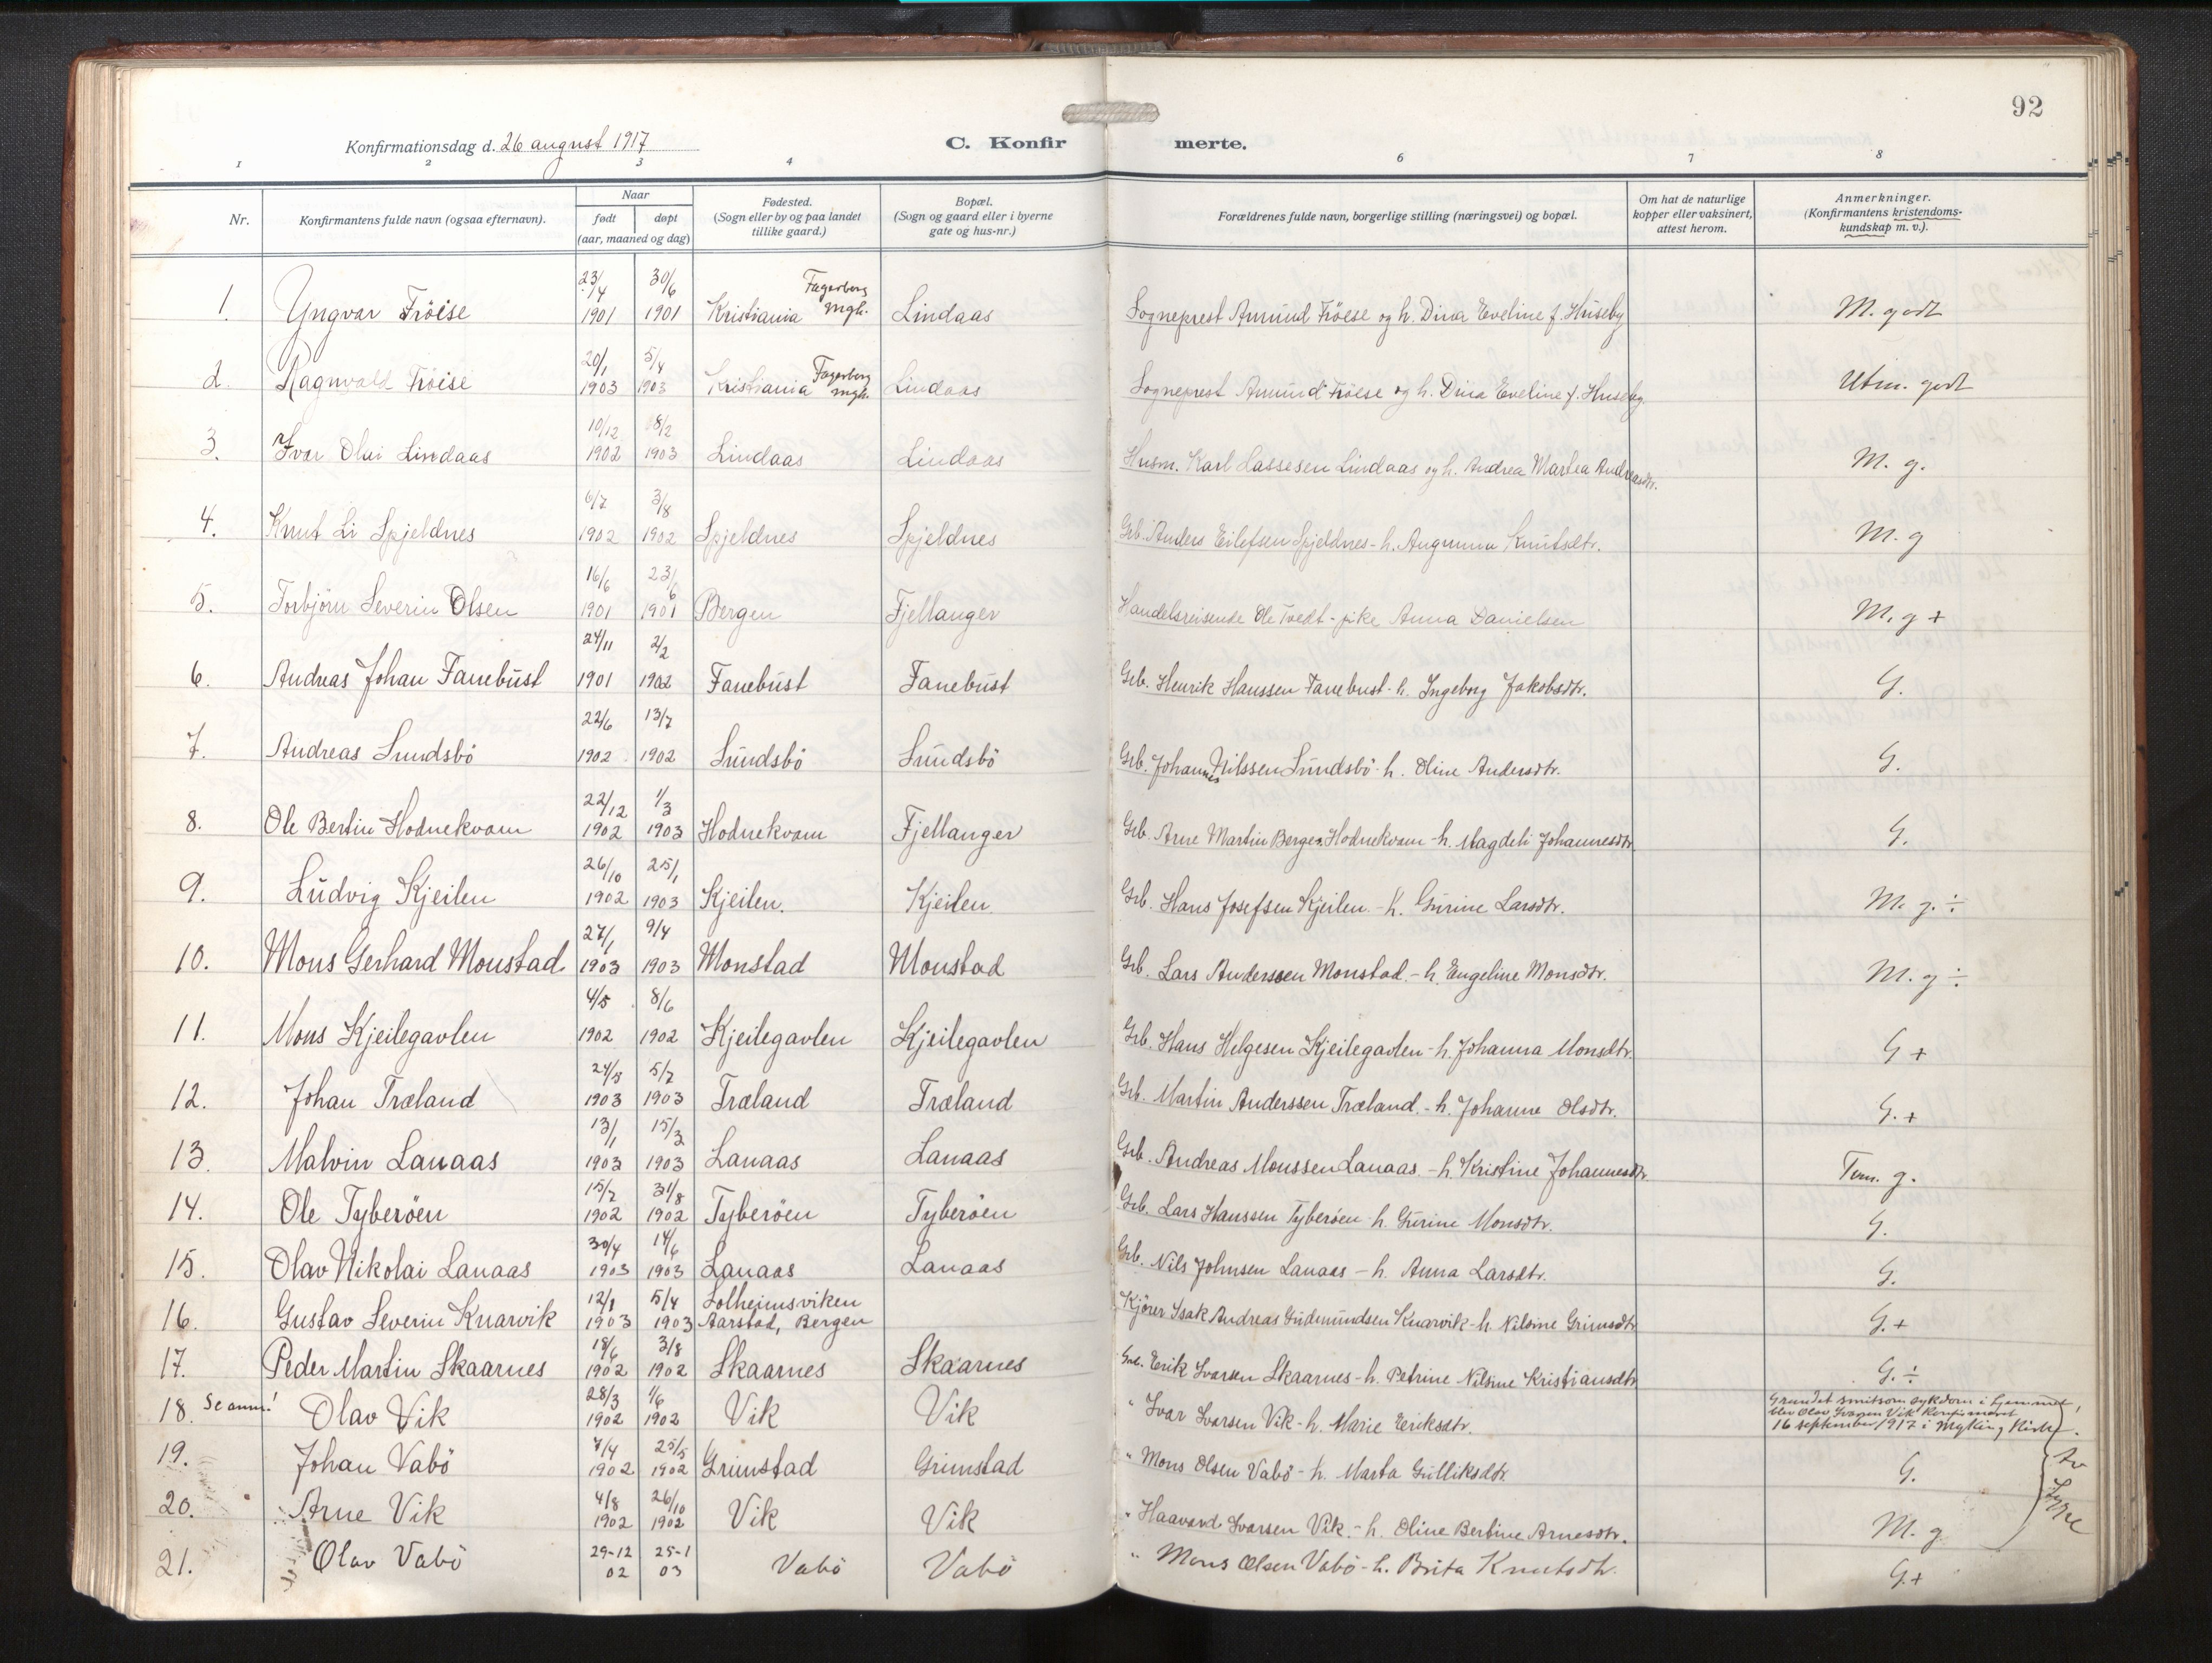 92
Konfirmationsdag d. 26 august 1917
C. Konfirmerte.
1 2 3 4 6 7 8
Nr. Konfirmantens fulde navn (ogsaa efternavn). Naar født døpt (aar, maaned og dag) Fødested. (Sogn eller by og paa landet tillike gaard.) Bopæl. (Sogn og gaard eller i byerne gate og hus-nr.) Forældrenes fulde navn, borgerlige stilling (næringsvei) og bopæl. Om hat de naturlige kopper eller vaksinert, attest herom. Anmerkninger. (Konfirmantens kristendoms-kundskap m. v.).
1. Yngvar Fröise 23/4 1901 30/6 1901 Kristiania Fagerborg mgh. Lindaas Sogneprest Amund Fröise og h. Dina Eveline f. Huseby M. godt
2. Ragnvald Fröise 20/1 1903 5/4 1903 Kristiania Fagerborg mgh. Lindaas Sogneprest Amund Fröise og h. Dina Eveline f. Huseby. Utm. godt
3. Ivar Olai Lindaas 10/12 1902 8/2 1903 Lindaas Lindaas Husm. Karl Lassesen Lindaas og h. Andrea Martea Andreasdtr. M. g.
4. Knut Li Spjeldnes 6/7 1902 3/8 1902 Spjeldnes Spjeldnes Grb. Anders Eilefsen Spjeldnes - h. Augunna Knutsdtr. M. g
5. Torbjörn Severin Olsen 16/6 1901 23/6 1901 Bergen Fjellanger Handelsreisende Ole Tvedt - pike Anna Danielsen M. g +
6. Andreas Johan Fanebust 24/11 1901 2/2 1902 Fanebust Fanebust Grb. Henrik Hanssen Fanebust - h. Ingeborg Jakobsdtr. G.
7. Andreas Sundsbö 22/6 1902 13/7 1902 Sundsbö Sundsbö Grb. Johannes Nilssen Sundsbö - h. Oline Andersdtr. G.
8. Ole Bertin Hodnekvam 22/12 1902 1/3 1903 Hodnekvam Fjellanger Grb. Arne Martin Berges. Hodnekvam - h. Magdeli Johannesdtr. G.
9. Ludvig Kjeilen 26/10 1902 25/1 1903 Kjeilen. Kjeilen Grb. Hans Josefsen Kjeilen - h. Gurine Larsdtr. M. g. ÷
10. Mons Gerhard Monstad 27/1 1903 9/4 1903 Monstad Monstad Grb. Lars Anderssen Monstad - h. Engeline Monsdtr. M. g ÷
11. Mons Kjeilegavlen 4/5 1902 8/6 1902 Kjeilegavlen Kjeilegavlen Grb. Hans Helgesen Kjeilegavlen - h. Johanna Monsdtr. G +
12. Johan Træland 24/5 1903 5/7 1903 Træland Træland Grb. Martin Anderssen Træland. - h. Johanne Olsdtr. G. +
13. Malvin Lanaas 13/1 1903 15/3 1903 Lanaas Lanaas Grb. Andreas Monssen Lanaas. - h. Kristine Johannesdtr. Tem. g.
14. Ole Tyberöen 15/7 1902 31/8 1902 Tyberöen Tyberöen Grb. Lars Hanssen Tyberöen - h. Gurine Monsdtr. G.
15. Olav Nikolai Lanaas 30/4 1903 14/6 1903 Lanaas Lanaas Grb. Nils Johnsen Lanaas - h. Anna Larsdtr. G.
16. Gustav Severin Knarvik 12/1 1903 5/4 1903 Solheimsviken Aarstad, Bergen Kjörer Isak Andreas Gudmundsen Knarvik - h. Nilsine Grimsdtr. G. +
17. Peder Martin Skaarnes 18/6 1902 3/8 1902 Skaarnes Skaarnes Grb. Eerik Ivarsen Skaarnes - h. Petrine Nilsine Kristiansdtr G. ÷
18. Se anm.! Olav Vik 28/3 1902 1/6 1902 Vik Vik " Ivar Ivarsen Vik - h. Marie Eeriksdtr. Grundet smitsom sykdom i hjemmet, blev Olav Ivarsen Vik konfirmert 16 september 1917 i Myking Kirke.
19. Johan Vabö 7/4 1902 25/5 1902 Grimstad Grimstad " Mons Olsen Vabö - h. Marta Gulliksdtr. G.
20. Arne Vik 4/8 1902 26/10 1902 Vik Vik " Haavard Ivarsen Vik. - h. Oline Bertine Arnesdtr. M. g
21. Olav Vabö 29-12 02 25-1 03 Vabö Vabö " Mons Olsen Vabö - h. Brita Knutsdtr. G. +